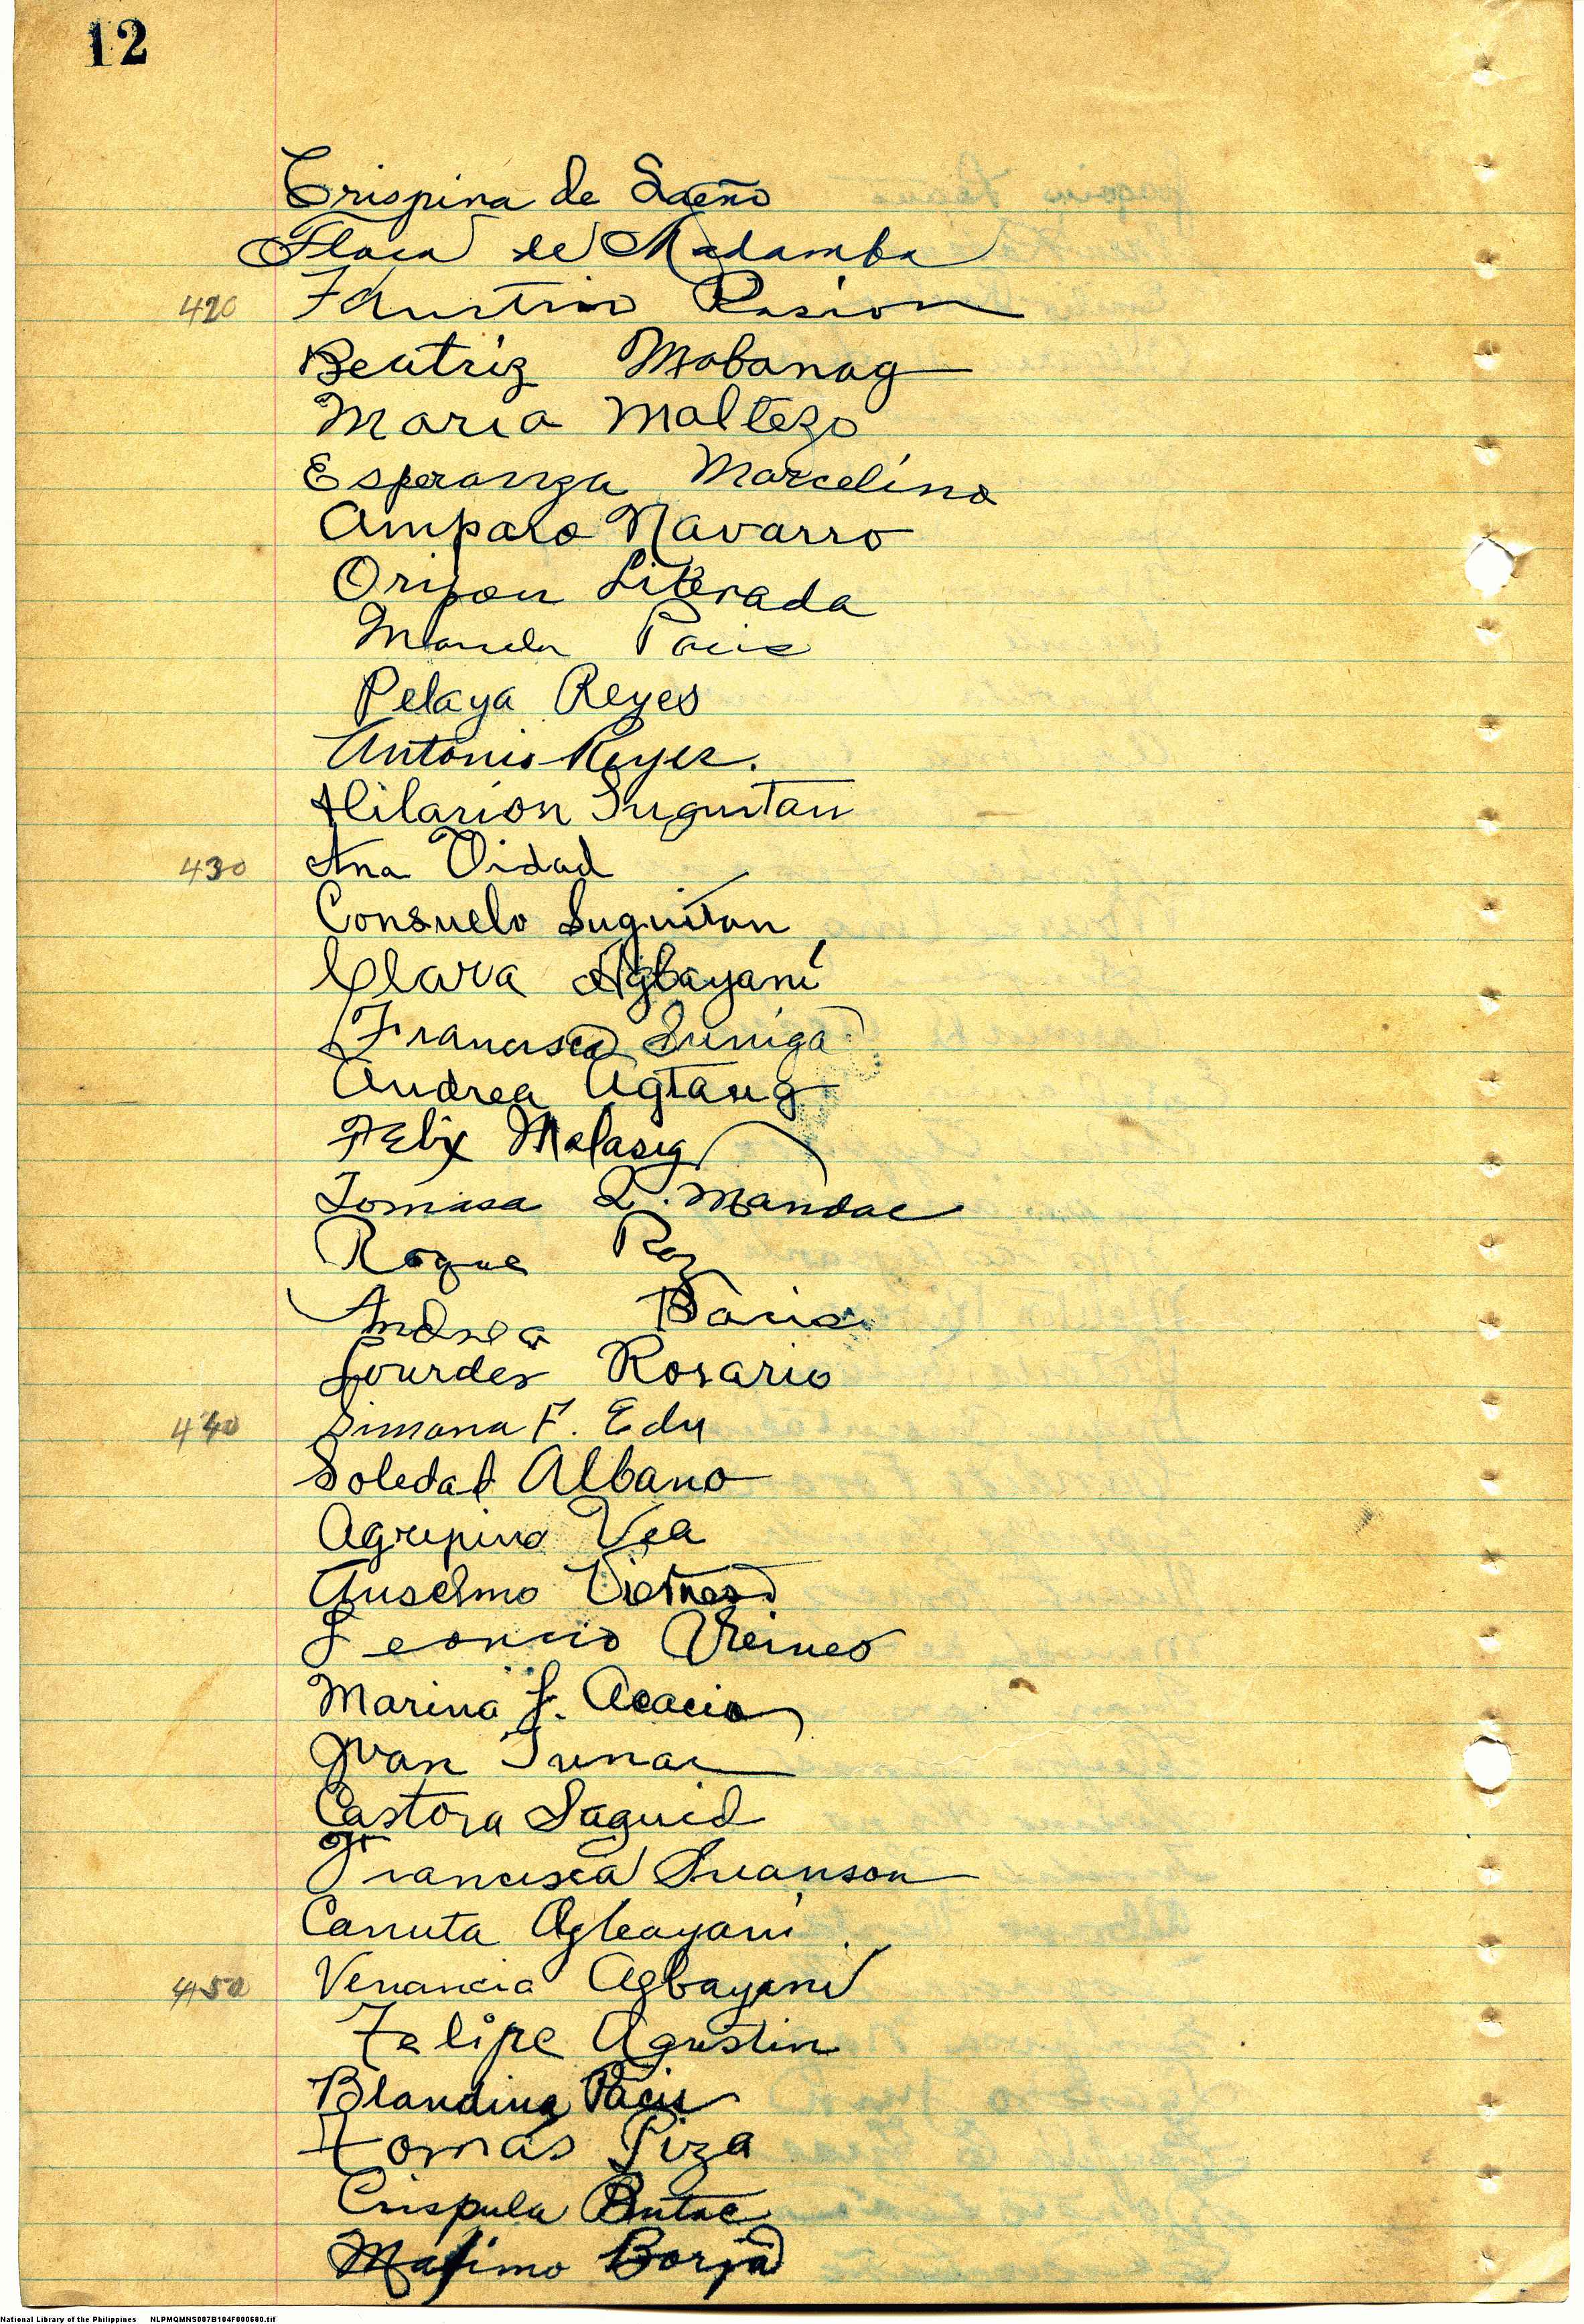 12
Crispina de Saeño
Flora de Madamba
420 Faustino Pasion
Beatriz Mabanag
Maria Maltezo
Esperanza Marcelino
Amparo Navarro
Oripon Liberada
Manuela Pacis
Pelaya Reyes
Antonio Reyes.
Hilarion Suguitan
430 Ana Vidad
Consuelo Suguitan
Clara Agbayani
Francisca Suniga
Andrea Agtang
Felix Malasig
Tomasa Q. Mandac
Roque Paz
Andrea Bacis
Lourdes Rosario
440 Simona F. Edu
Soledad Albano
Agripino Vea
Anselmo
Leoncio
Marina L. Acacio
Juan Tunac
Castora Saguid
Francisca Suanson
Canuta Agbayani
450 Venancia Agbayani
Felipe Agustin
Blandina Pacis
Tomas Piza
Crispula Butac
Maximo Borja
National Library of the Philippines NLPMQMNS007B104F000680.tif